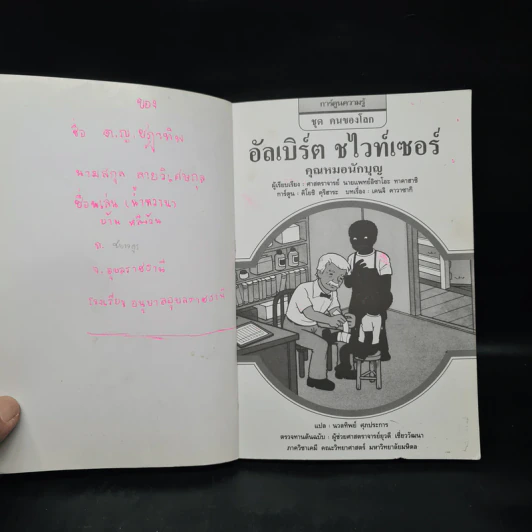 ของ
ชื่อ ด.ญ
นามสกุล
ชื่อเล่น (น้ำหวาน)
บ้าน
อ.
จ. อุบลราชธานี
โรงเรียน อนุบาลอุบลราชธานี
การ์ตูนความรู้
ชุด คนของโลก
อัลเบิร์ต ชไวท์เซอร์
คุณหมอนักบุญ
ผู้เรียบเรียง : ศาสตราจารย์ นายแพทย์อิซาโอะ ทาคาฮาชิ
การ์ตูน : คิโยชิ คุริฮาระ บทเรื่อง : เคนจิ คาวาซากิ
แปล : นวลทิพย์ ศุภประการ
ตรวจทานต้นฉบับ : ผู้ช่วยศาสตราจารย์ยุวดี เชี่ยววัฒนา
ภาควิชาเคมี คณะวิทยาศาสตร์ มหาวิทยาลัยมหิดล